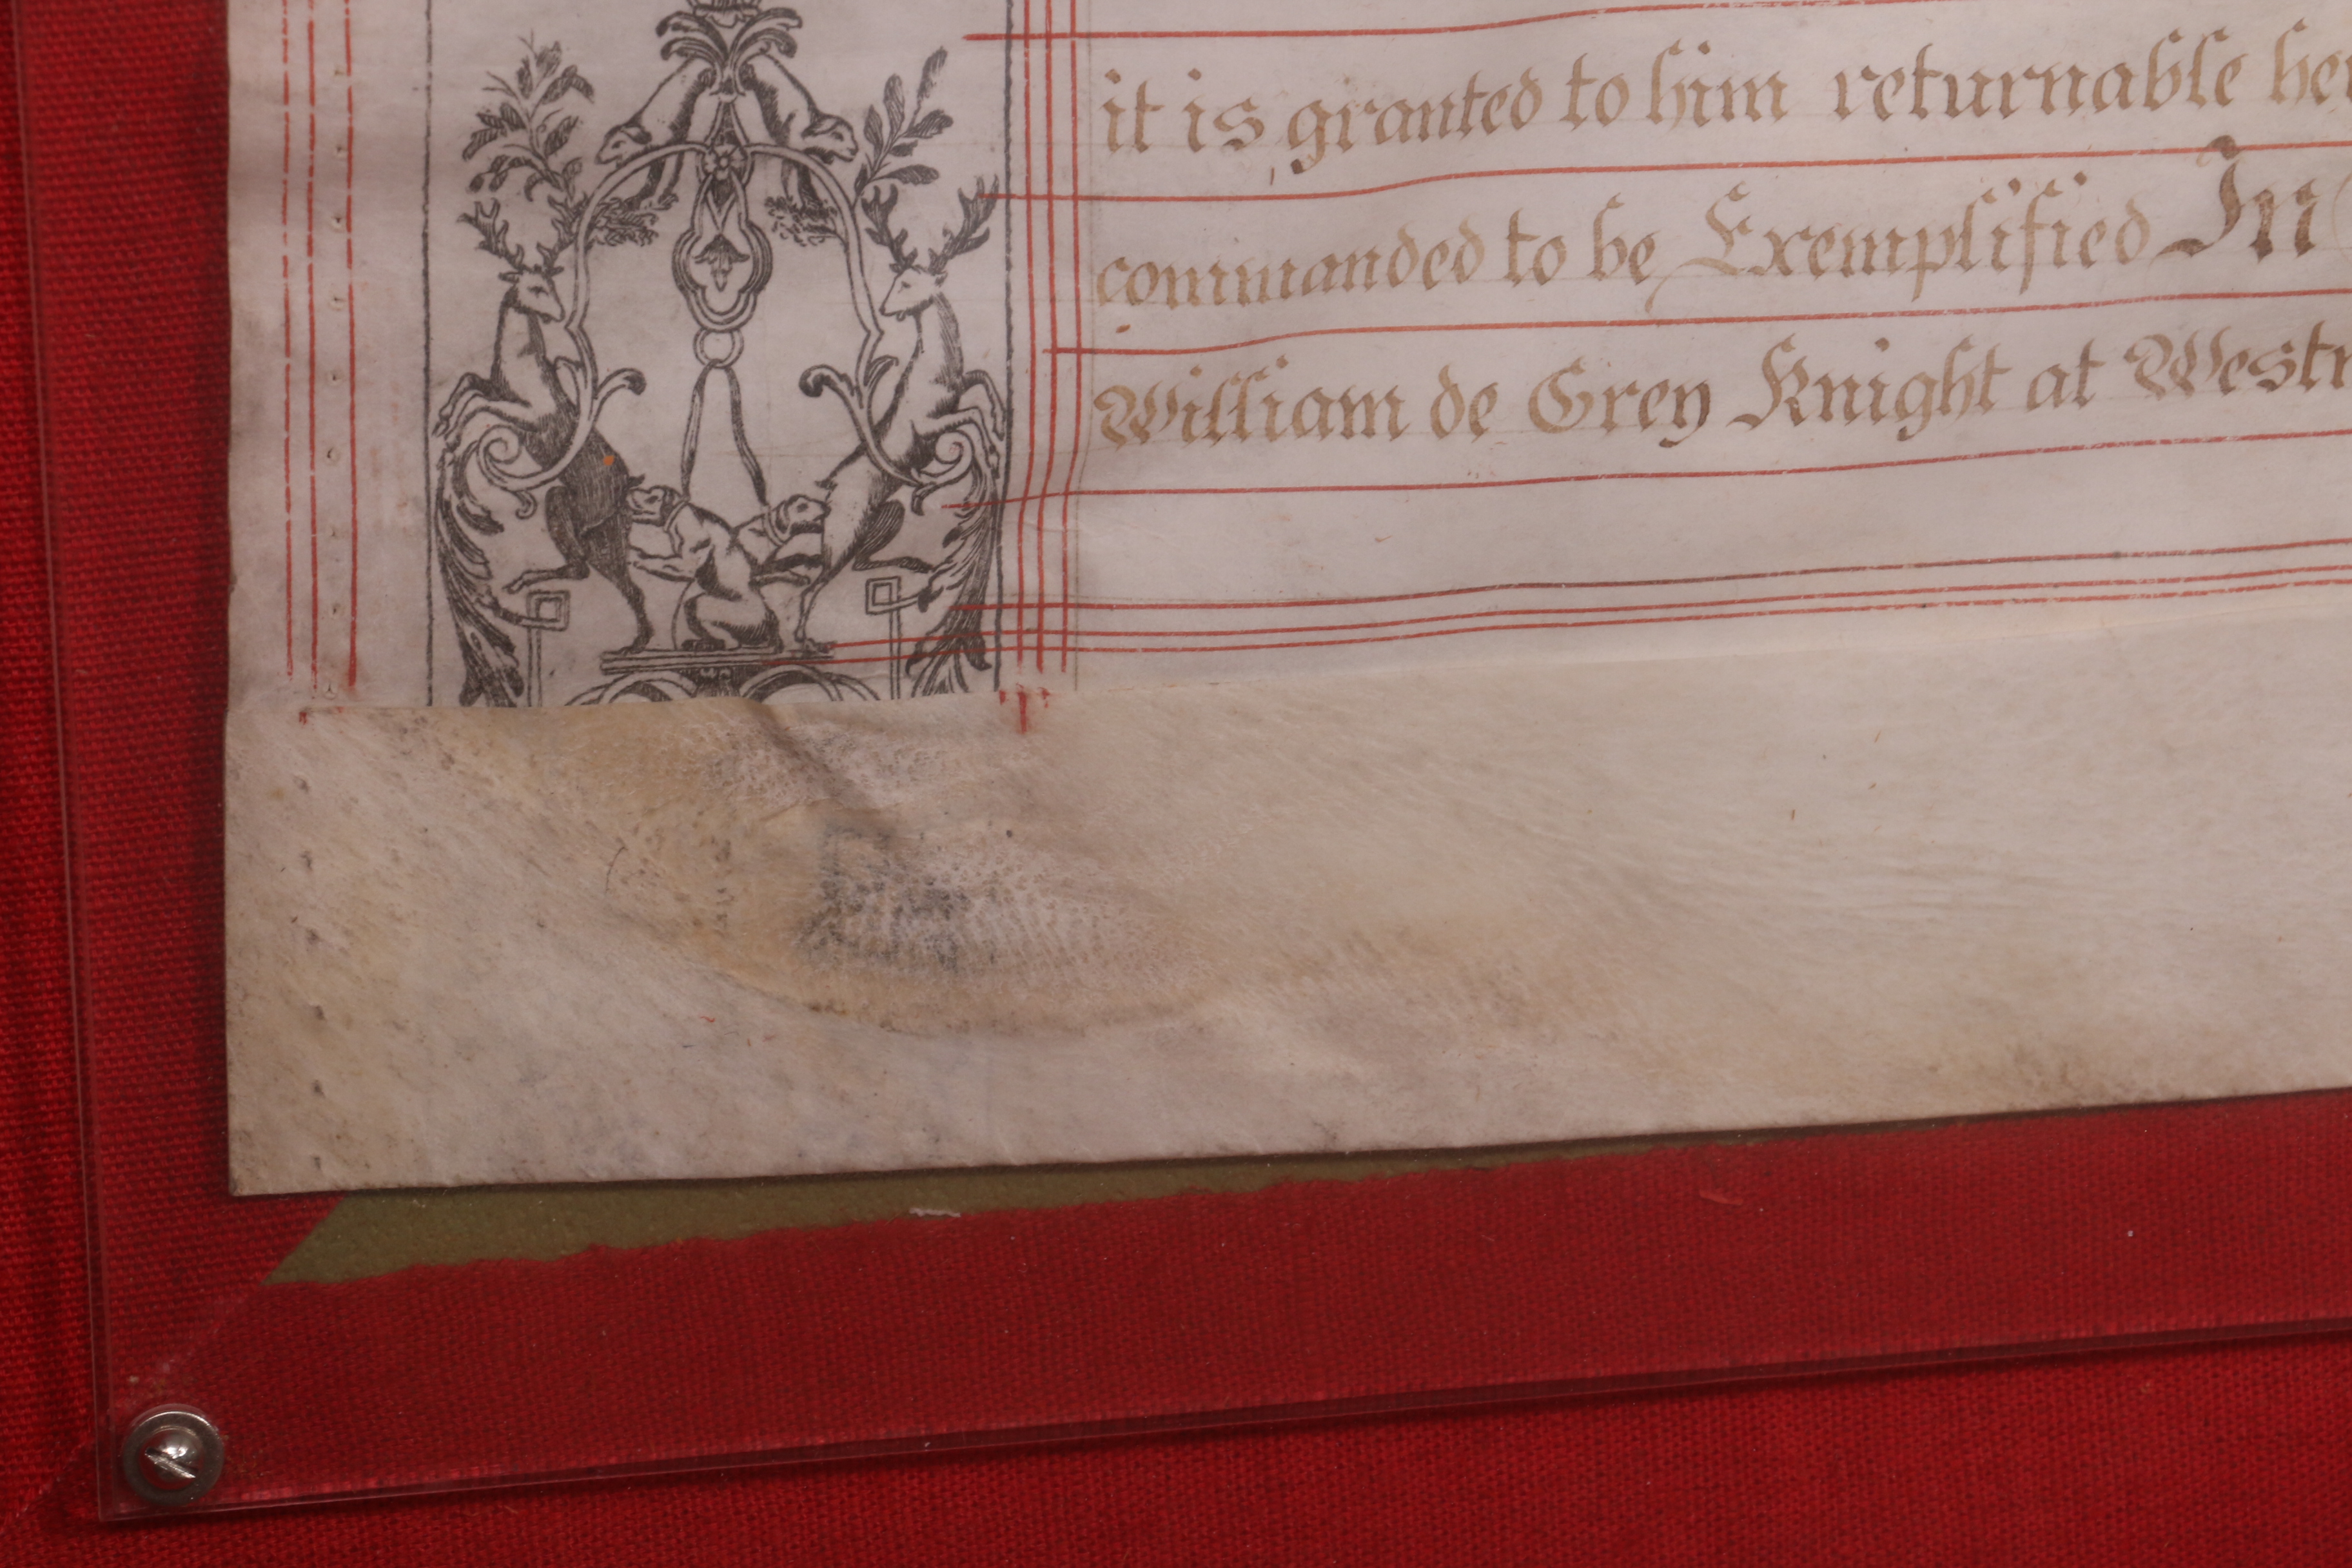 it is granted to him returnable
commanded to be Exemplified In
William de Grey Knight at